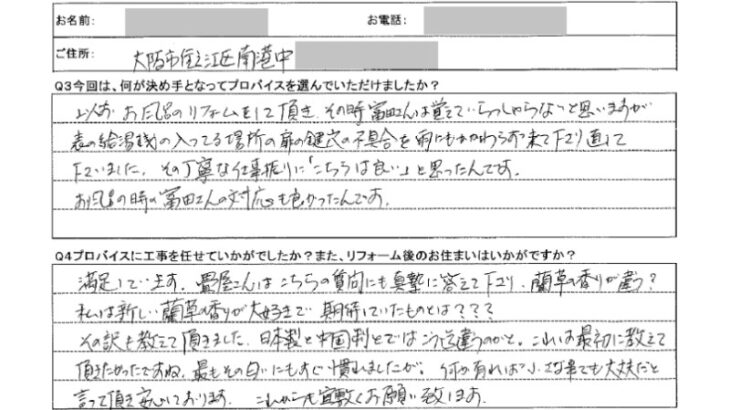 お名前: お電話:
ご住所: 大阪市住之江区南港中
Q3今回は、何が決め手となってプロバイスを選んでいただけましたか？
以前お風呂のリフォームをして頂き、その時冨田さんは覚えていらっしゃらないと思いますが
表の給湯機の入ってる場所の扉の鍵穴の不具合を雨にもかかわらず来て下さり直して
下さいました。その丁寧な仕事振りに「こちらは良い」と思ったんです。
お風呂の時の冨田さんの対応も良かったんです。
Q4プロバイスに工事を任せていかがでしたか？また、リフォーム後のお住まいはいかがですか？
満足しています。畳屋さんはこちらの質問にも真摯に答えて下さり、藺草の香りが違う？
私は新しい藺草の香りが大好きで期待していたものとは？？？
その訳も教えて頂きました。日本製と中国製とではこう違うのかと。これは最初に教えて
頂きたかったですね。最もその匂いにもすぐ慣れましたが。何か有れば小さな事でも大丈夫だと
言って頂き安心しております。これからも宜敷くお願い致します。